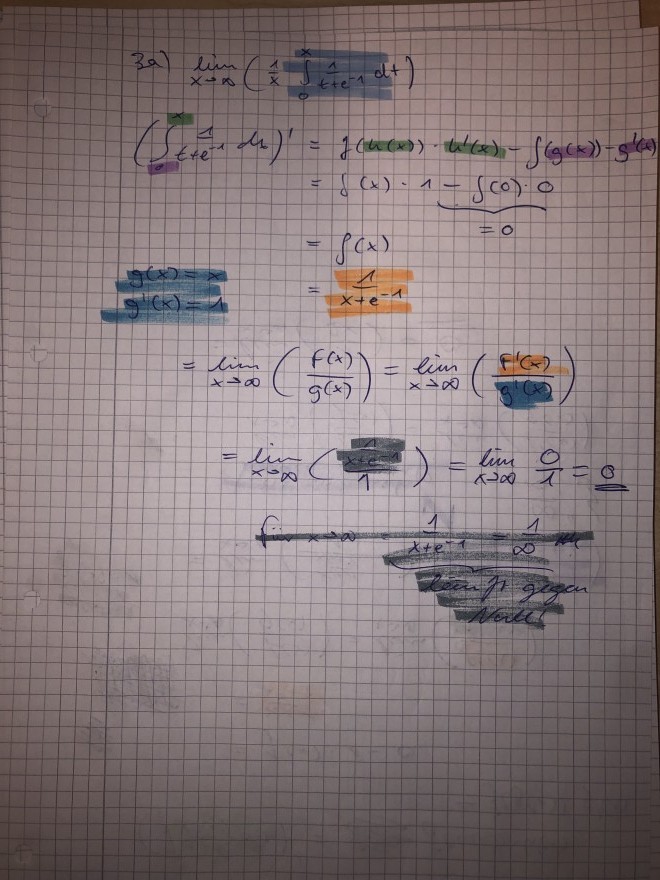 3a) lim x→∞ ( 1/x ∫₀ˣ 1/(t+e⁻¹) dt )
( ∫₀ˣ 1/(t+e⁻¹) dt )' = f(h(x)) · h'(x) − f(g(x)) − g'(x)
= f(x) · 1 − f(0) · 0
= 0
= f(x)
g(x) = x
= 1/(x+e⁻¹)
g'(x) = 1
= lim x→∞ ( F(x)/g(x) ) = lim x→∞ ( F'(x)/g'(x) )
= lim x→∞ ( (1/(x+e⁻¹))/1 ) = lim x→∞ 0/1 = 0
für x→∞ = 1/(x+e⁻¹) = 1/∞
läuft gegen
Null